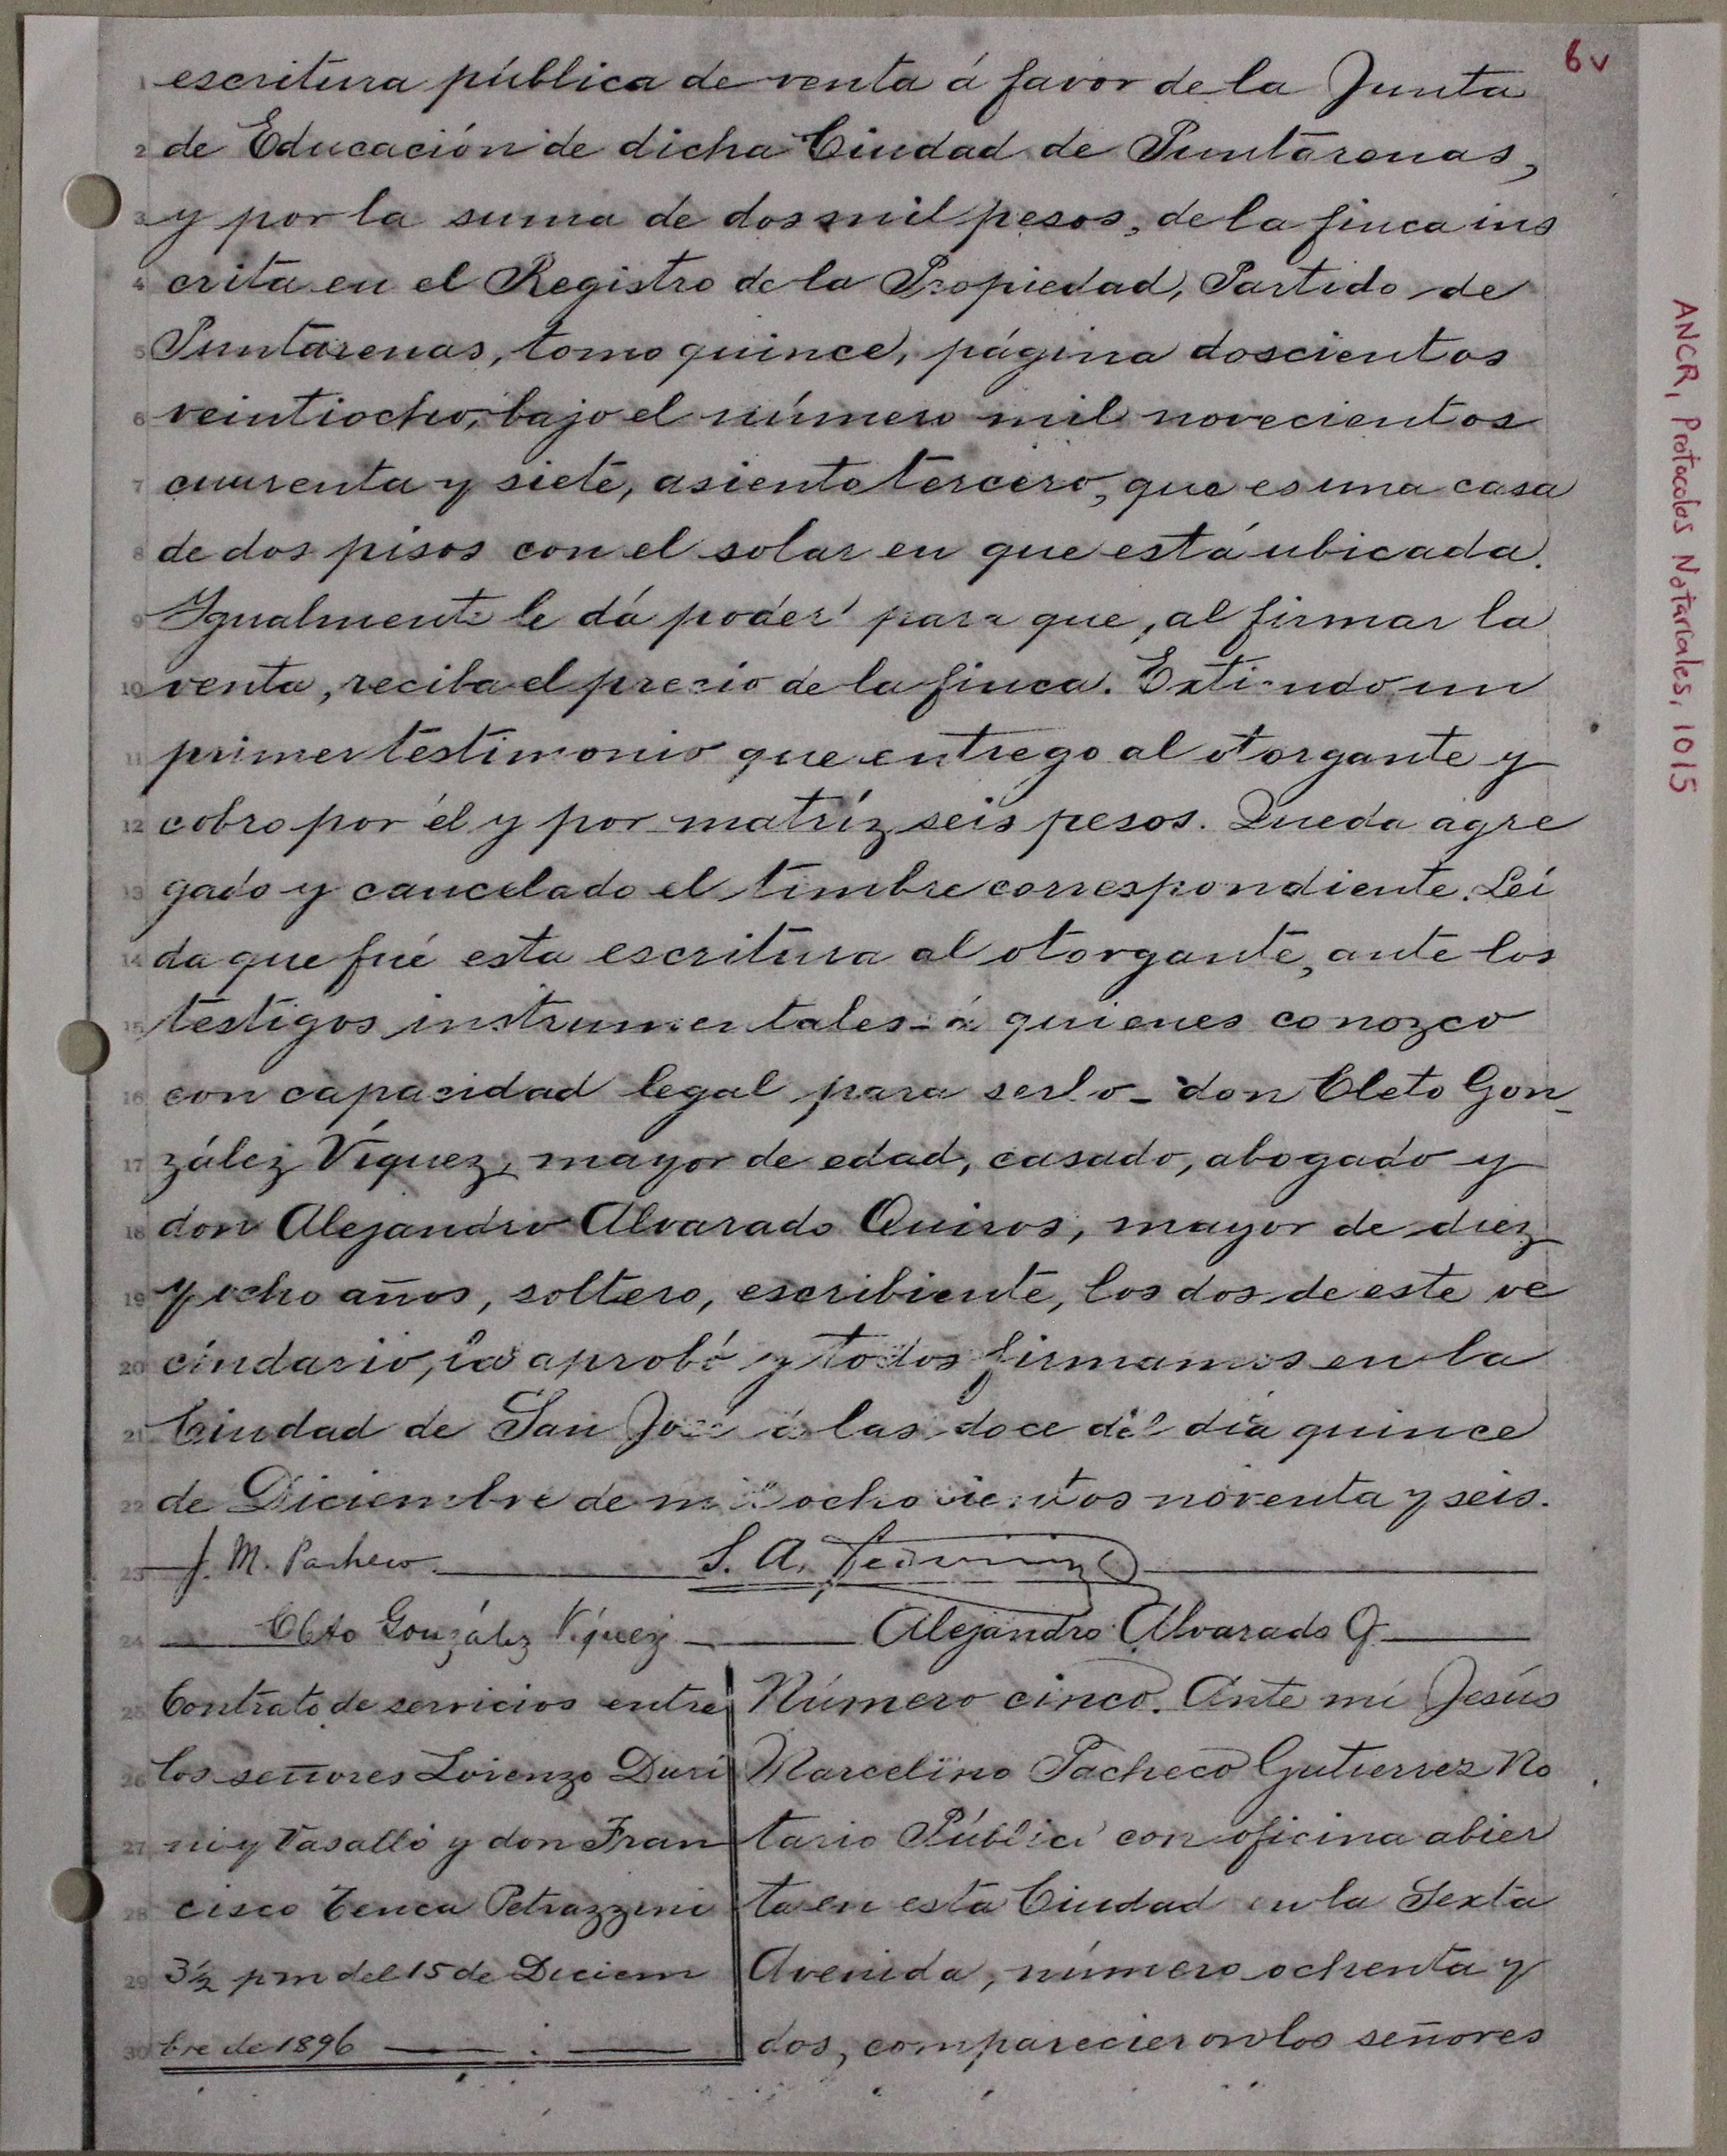 6v
ANCR, Protocolos Notariales, 1015
1 escritura pública de venta á favor de la Junta
2 de Educación de dicha Ciudad de Puntarenas,
3 y por la suma de dos mil pesos, de la finca ins
4 crita en el Registro de la Propiedad, Partido de
5 Puntarenas, tomo quince, página doscientos
6 veintiocho, bajo el número mil novecientos
7 cuarenta y siete, asiento tercero, que es una casa
8 de dos pisos con el solar en que está ubicada.
9 Igualmente le dá poder para que, al firmar la
10 venta, reciba el precio de la finca. Extiendo un
11 primer testimonio que entrego al otorgante y
12 cobro por él y por matríz seis pesos. Queda agre
13 gado y cancelado el timbre correspondiente. Leí
14 da que fué esta escritura al otorgante, ante los
15 testigos instrumentales - á quienes conozco
16 con capacidad legal para serlo - don Cleto Gon-
17 zález Víquez, mayor de edad, casado, abogado y
18 don Alejandro Alvarado Quiros, mayor de diez
19 y ocho años, soltero, escribiente, los dos de este ve
20 cindario, la aprobó y todos firmamos en la
21 Ciudad de San José á las doce del día quince
22 de Diciembre de mil ochocientos noventa y seis.
23 J. M. Pacheco. S. A.
24 Cleto González Víquez Alejandro Alvarado Q.
25 Contrato de servicios entre
26 los señores Lorenzo Duri
27 ni y Vasalló y don Fran
28 cisco Tenca Petrazzini
29 3½ pm del 15 de Diciem
30 bre de 1896
Número cinco. Ante mí Jesús
Marcelino Pacheco Gutierrez No
tario Público con oficina abier
ta en esta Ciudad en la Sexta
Avenida, número ochenta y
dos, comparecieron los señores